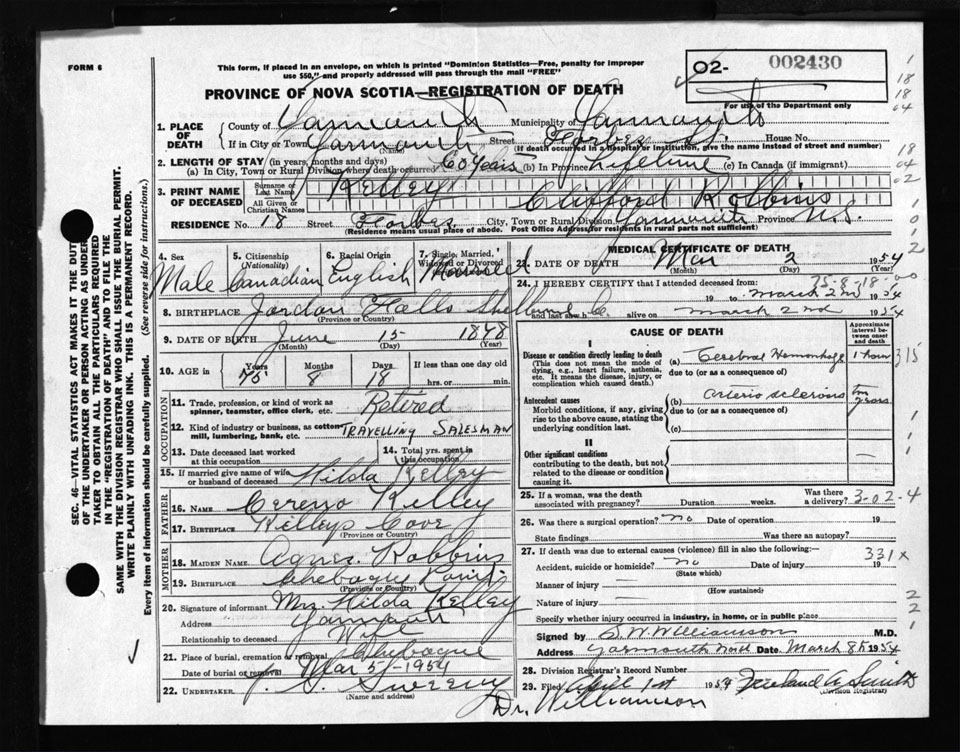 FORM 6
This form, if placed in an envelope, on which is printed "Dominion Statistics—Free, penalty for improper
use $50," and properly addressed will pass through the mail "FREE"
PROVINCE OF NOVA SCOTIA—REGISTRATION OF DEATH
O2- 002430
For use of the Department only
1. PLACE OF DEATH
County of Yarmouth Municipality of Yarmouth
If in City or Town Yarmouth (Name) Street Forbes St. House No.
(If death occurred in a hospital or institution, give the name instead of street and number)
2. LENGTH OF STAY (in years, months and days)
(a) In City, Town or Rural Division where death occurred 60 Years (b) In Province Lifetime (c) In Canada (if immigrant)
3. PRINT NAME OF DECEASED
Surname or Last Name Kelley
All Given or Christian Names Clifford Robbins
RESIDENCE No. 18 Street Forbes City, Town or Rural Division Yarmouth Province N.S.
(Residence means usual place of abode. Post Office Address for residents in rural parts not sufficient)
4. Sex Male
5. Citizenship (Nationality) Canadian
6. Racial Origin English
7. Single, Married, Widowed or Divorced Married
8. BIRTHPLACE Jordan Falls Shelburne Co.
(Province or Country)
9. DATE OF BIRTH June 15 1878
(Month) (Day) (Year)
10. AGE in Years 75 Months 8 Days 18 If less than one day old
hrs. or min.
OCCUPATION
11. Trade, profession, or kind of work as
spinner, teamster, office clerk, etc. Retired
12. Kind of industry or business, as cotton
mill, lumbering, bank, etc. TRAVELLING SALESMAN
13. Date deceased last worked
at this occupation
14. Total yrs. spent in
this occupation
15. If married give name of wife
or husband of deceased Hilda Kelley
FATHER
16. NAME Cereno Kelley
17. BIRTHPLACE Kelleys Cove
(Province or Country)
MOTHER
18. MAIDEN NAME Agnes Robbins
19. BIRTHPLACE Chebogue Point
(Province or Country)
20. Signature of informant Mrs. Hilda Kelley
Address Yarmouth
Relationship to deceased Wife
21. Place of burial, cremation or removal Chebogue
Date of burial or removal Mar 5/-1954
22. UNDERTAKER Sweeny
(Name and address)
MEDICAL CERTIFICATE OF DEATH
23. DATE OF DEATH Mar 2 1954
(Month) (Day) (Year)
24. I HEREBY CERTIFY that I attended deceased from: 75-8-18-00
19 to March 2nd 1954
and last saw h alive on March 2nd 1954
CAUSE OF DEATH
Approximate interval between onset and death
I
Disease or condition directly leading to death
(This does not mean the mode of
dying, e.g., heart failure, asthenia,
etc. It means the disease, injury, or
complication which caused death.)
(a) Cerebral Hemorrhage 1 hour
due to (or as a consequence of)
Antecedent causes
Morbid conditions, if any, giving
rise to the above cause, stating the
underlying condition last.
(b) Arterio sclerosis ten years
due to (or as a consequence of)
(c)
II
Other significant conditions
contributing to the death, but not
related to the disease or condition
causing it.
25. If a woman, was the death
associated with pregnancy? Duration weeks. Was there
a delivery? 3-02-4
26. Was there a surgical operation? no Date of operation 19
State findings Was there an autopsy?
27. If death was due to external causes (violence) fill in also the following:— 331x
Accident, suicide or homicide? no Date of injury 19
(State which)
Manner of injury —
(How sustained)
Nature of injury —
Specify whether injury occurred in industry, in home, or in public place
Signed by S. W. Williamson M.D.
Address Yarmouth North Date March 8th 1954
28. Division Registrar's Record Number
29. Filed April 1st 1954 Freeland A Smith
(Division Registrar)
Dr. Williamson
SEC. 46—VITAL STATISTICS ACT MAKES IT THE DUTY
OF THE UNDERTAKER OR PERSON ACTING AS UNDER-
TAKER TO OBTAIN ALL THE PARTICULARS REQUIRED
IN THE "REGISTRATION OF DEATH" AND TO FILE THE
SAME WITH THE DIVISION REGISTRAR WHO SHALL ISSUE THE BURIAL PERMIT.
WRITE PLAINLY WITH UNFADING INK. THIS IS A PERMANENT RECORD.
Every item of information should be carefully supplied. (See reverse side for instructions.)